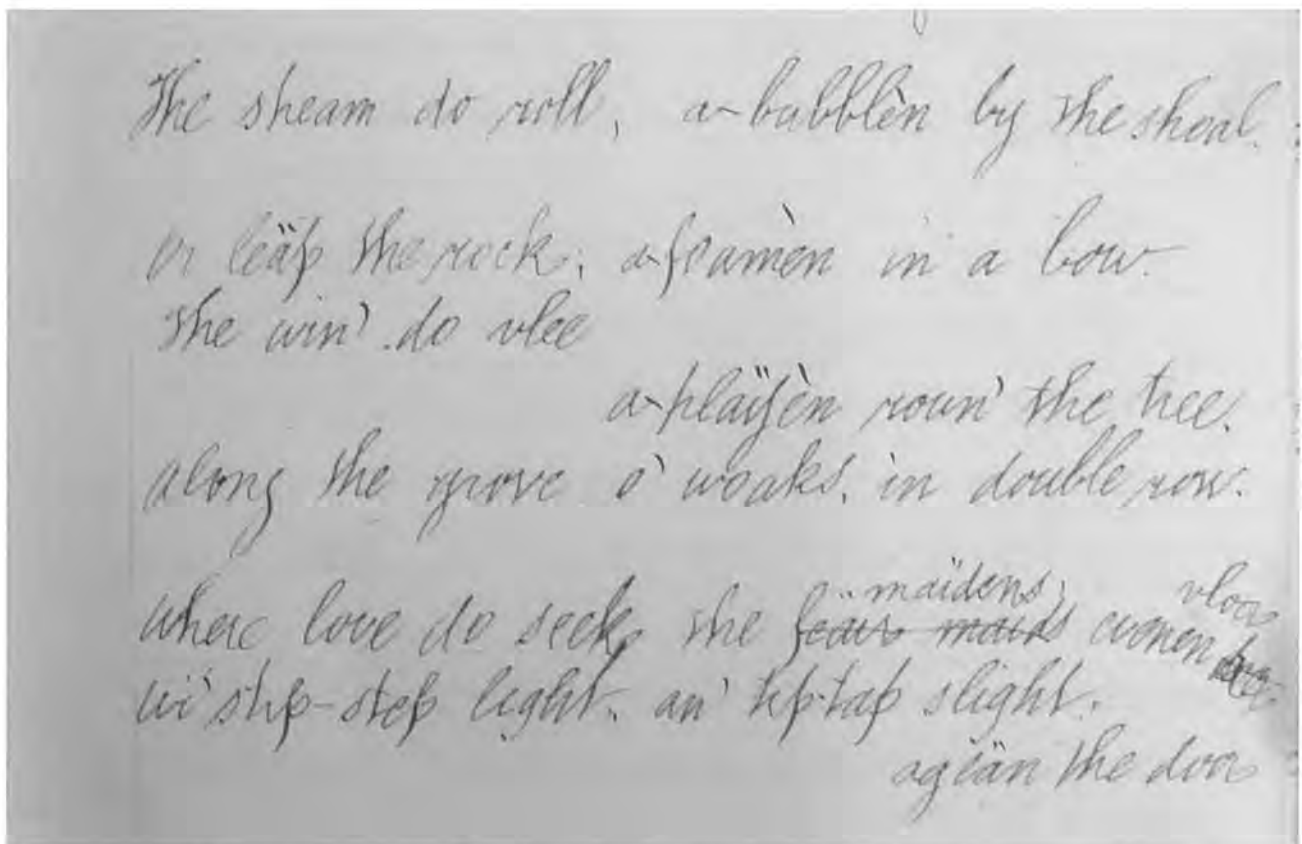 The stream do roll, a-bubblèn by the shoal.
or leäp the rock, a-foamèn in a bow.
The win' do vlee
a-plaÿèn roun' the tree.
along the grove o' woaks, in double row.
maïdens, vloor
where love do seek the feäir maids evenen
wi' step-step light, an' tip-tap slight.
ageän the door